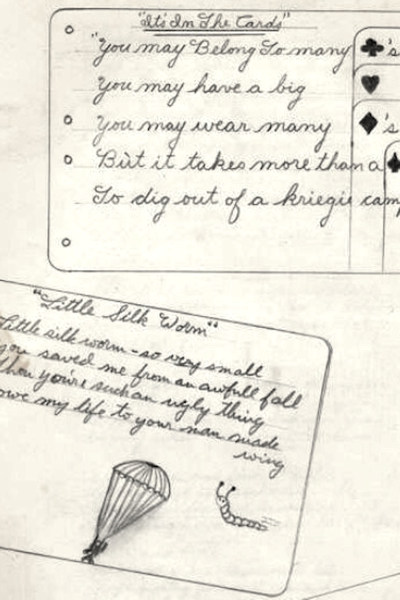 "It's In The Cards"
"You may Belong To many ♣'s
You may have a big ♥
You may wear many ♦'s
But it takes more than a ♠
To dig out of a kriegie camp
"Little Silk Worm"
Little silk worm - so very small
you saved me from an awfull fall
Thou you're such an ugly thing
owe my life to your man made
wing